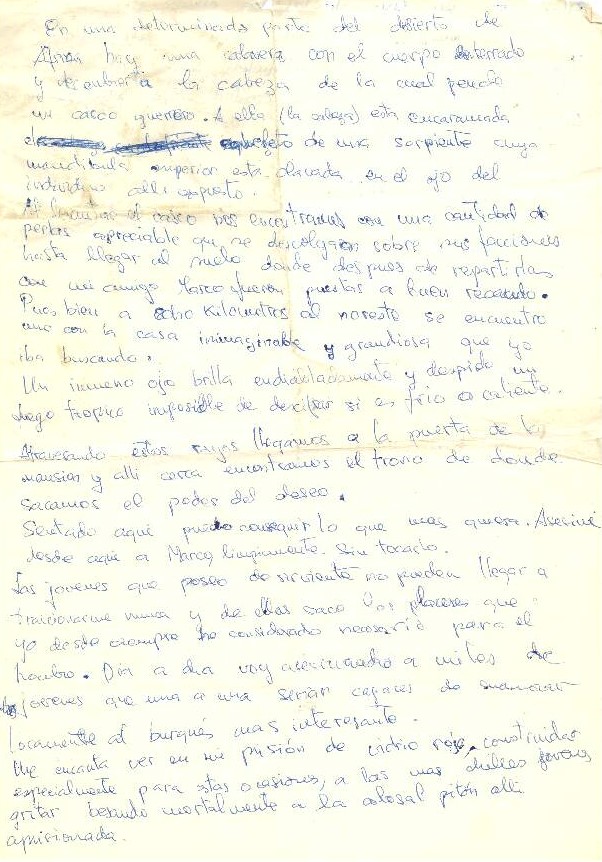 En una determinada parte del desierto de
hay una calavera con el cuerpo enterrado
y descubierta la cabeza de la cual pende
un casco guerrero. A ella (la cabeza) esta encaramada
esqueleto de una serpiente cuya
mandibula superior esta clavada en el ojo del
individuo alli expuesto.
Al levantar el casco nos encontramos con una cantidad de
perlas apreciable que se descolgaron sobre sus facciones
hasta llegar al suelo donde despues de repartirlas
con mi amigo Marco fueron puestas a buen recaudo.
Pues bien a ocho kilometros al noreste se encuentra
uno con la casa inimaginable y grandiosa que yo
iba buscando.
Un inmenso ojo brilla endiabladamente y despide un
fuego tropico imposible de descifrar si es frio o caliente.
Atravesando estos rayos llegamos a la puerta de la
mansion y alli cerca encontramos el trono de donde
sacamos el poder del deseo.
Sentado aqui puedo conseguir lo que mas quiera. Asesiné
desde aqui a Marco limpiamente. Sin tocarlo.
Las jovenes que poseo de sirviente no pueden llegar a
traicionarme nunca y de ellas saco los placeres que
yo desde siempre he considerado necesario para el
hombre. Dia a dia voy asesinando a miles de
jovenes que una a una serian capaces de enamorar
locamente al burgués mas interesante.
Me encanta ver en mi prisión de vidrio rojo, construidas
especialmente para estas ocasiones, a las mas dulces jovenes
gritar besando mortalmente a la colosal pitón alli
aprisionada.